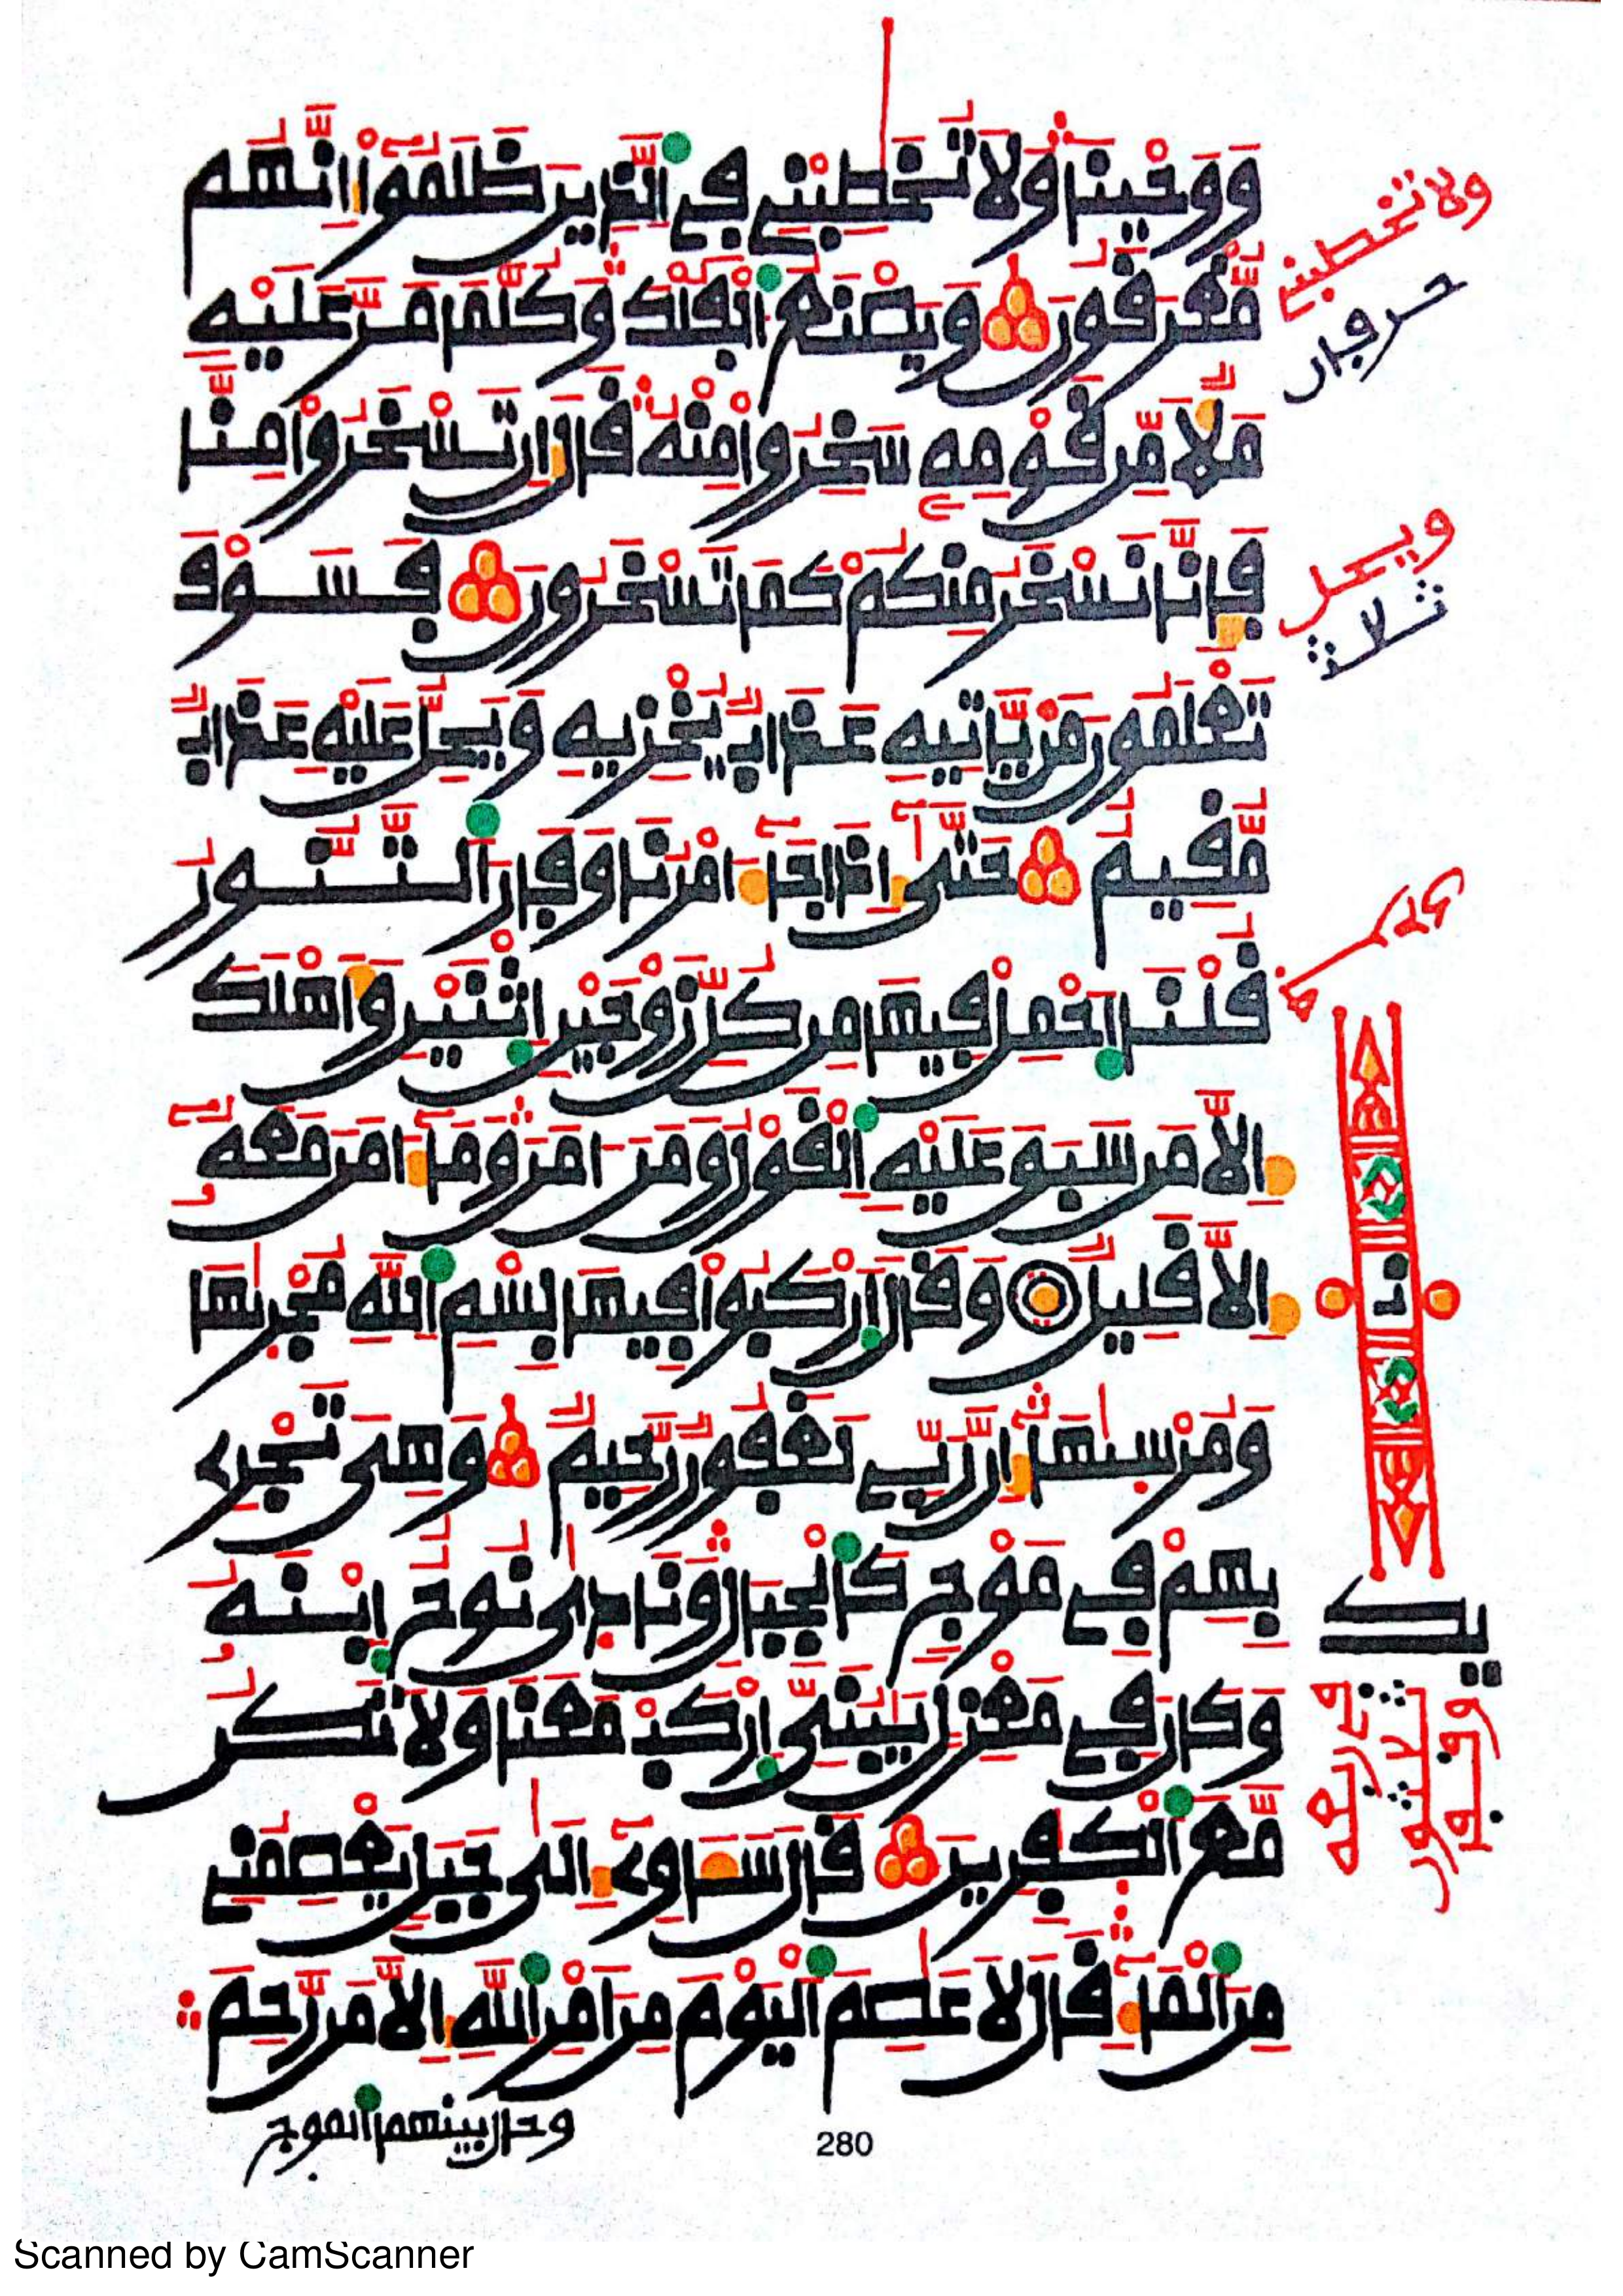 وَوَحْيِنَا وَلَا تُخَٰطِبْنِے فِے اِ۬لذِينَ ظَلَمُوٓاْ إِنَّهُم
مُّغْرَقُونَ وَيَصْنَعُ اُ۬لْفُلْكَ وَكُلَّمَا مَرَّ عَلَيْهِ
مَلَأٌ مِّن قَوْمِهِۦ سَخِرُواْ مِنْهُ قَالَ إِن تَسْخَرُواْ مِنَّا
فَإِنَّا نَسْخَرُ مِنكُمْ كَمَا تَسْخَرُونَ فَسَوْفَ
تَعْلَمُونَ مَنْ يَّاتِيهِ عَذَابٌ يُخْزِيهِ وَيَحِلُّ عَلَيْهِ عَذَابٌ
مُّقِيمٌ حَتَّىٰٓ إِذَا جَآءَ امْرُنَا وَفَارَ اَ۬لتَّنُّورُ
قُلْنَا اَ۪حْمِلْ فِيهَا مِن كُلِّ زَوْجَيْنِ اِ۪ثْنَيْنِ وَأَهْلَكَ
إِلَّا مَن سَبَقَ عَلَيْهِ اِ۬لْقَوْلُ وَمَنَ اٰمَنَ وَمَآ ءَامَنَ مَعَهُۥٓ
إِلَّا قَلِيلٌ وَقَالَ اَ۪رْكَبُواْ فِيهَا بِسْمِ اِ۬للَّهِ مُجْر۪ىٰهَا
وَمُرْسَىٰهَآ إِنَّ رَبِّے لَغَفُورٌ رَّحِيمٌ وَهِىَ تَجْرِے
بِهِمْ فِے مَوْجٍ كَالْجِبَالِ وَنَادَىٰ نُوحٌ اِ۪بْنَهُۥ
وَكَانَ فِے مَعْزِلٍ يَٰبُنَىِّ اِ۪رْكَب مَّعَنَا وَلَا تَكُن
مَّعَ اَ۬لْكَٰفِرِينَ قَالَ سَـَٔاوِےٓ إِلَىٰ جَبَلٍ يَعْصِمُنِے
مِنَ اَ۬لْمَآءِ قَالَ لَا عَاصِمَ اَ۬لْيَوْمَ مِنَ اَمْرِ اِ۬للَّهِ إِلَّا مَن رَّحِمَ
وحال بينهما الموج
280
ولا تخطبنے
حرفان
ويحل
ثلاث
يك
Scanned by CamScanner